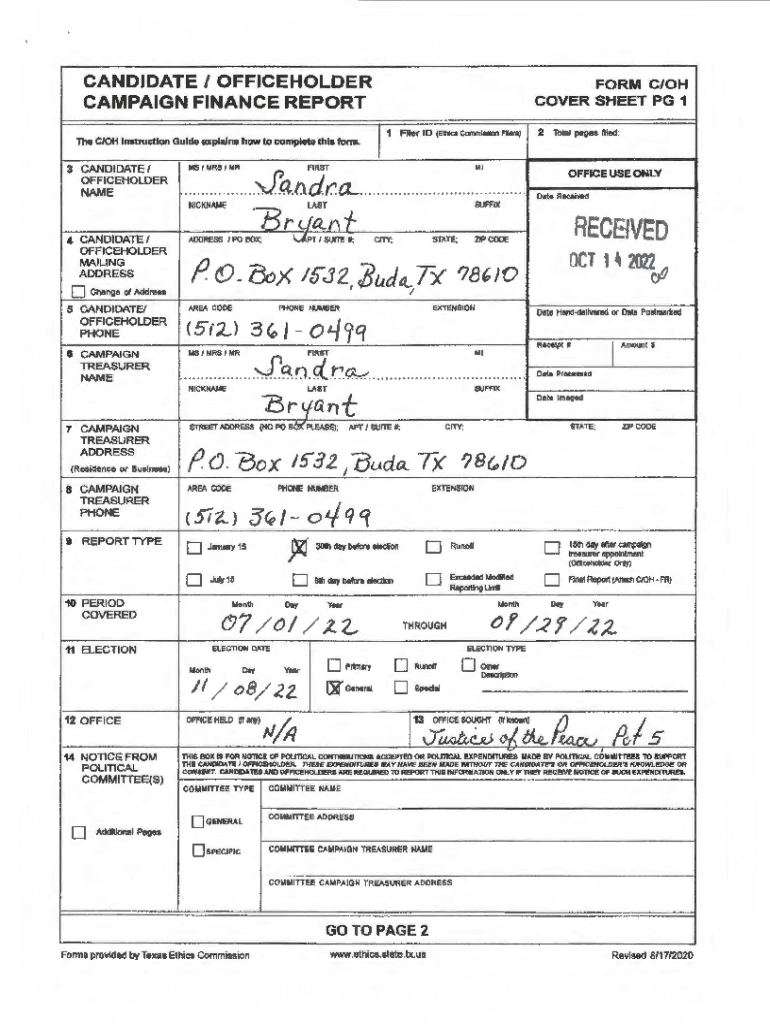 CANDIDATE / OFFICEHOLDER
CAMPAIGN FINANCE REPORT
FORM C/OH
COVER SHEET PG 1
The C/OH Instruction Guide explains how to complete this form.
1 Filer ID (Ethics Commission Filers)
2 Total pages filed:
3 CANDIDATE / OFFICEHOLDER NAME
MS / MRS / MR FIRST MI
Sandra
NICKNAME LAST SUFFIX
Bryant
OFFICE USE ONLY
Date Received
RECEIVED
OCT 14 2022
4 CANDIDATE / OFFICEHOLDER MAILING ADDRESS
Change of Address
ADDRESS / PO BOX; APT / SUITE #; CITY; STATE; ZIP CODE
P.O. Box 1532, Buda, TX 78610
5 CANDIDATE/ OFFICEHOLDER PHONE
AREA CODE PHONE NUMBER EXTENSION
(512) 361-0499
Date Hand-delivered or Date Postmarked
Receipt # Amount $
Date Processed
Date Imaged
6 CAMPAIGN TREASURER NAME
MS / MRS / MR FIRST MI
Sandra
NICKNAME LAST SUFFIX
Bryant
7 CAMPAIGN TREASURER ADDRESS
(Residence or Business)
STREET ADDRESS (NO PO BOX PLEASE); APT / SUITE #; CITY; STATE; ZIP CODE
P.O. Box 1532, Buda TX 78610
8 CAMPAIGN TREASURER PHONE
AREA CODE PHONE NUMBER EXTENSION
(512) 361-0499
9 REPORT TYPE
January 15
X 30th day before election
Runoff
15th day after campaign treasurer appointment (Officeholder Only)
July 15
8th day before election
Exceeded Modified Reporting Limit
Final Report (Attach C/OH - FR)
10 PERIOD COVERED
Month Day Year
07/01/22
THROUGH
Month Day Year
09/29/22
11 ELECTION
ELECTION DATE
Month Day Year
11/08/22
ELECTION TYPE
Primary
Runoff
Other Description
X General
Special
12 OFFICE
OFFICE HELD (if any)
N/A
13 OFFICE SOUGHT (if known)
Justice of the Peace, Pct 5
14 NOTICE FROM POLITICAL COMMITTEE(S)
THIS BOX IS FOR NOTICE OF POLITICAL CONTRIBUTIONS ACCEPTED OR POLITICAL EXPENDITURES MADE BY POLITICAL COMMITTEES TO SUPPORT
THE CANDIDATE / OFFICEHOLDER. THESE EXPENDITURES MAY HAVE BEEN MADE WITHOUT THE CANDIDATE'S OR OFFICEHOLDER'S KNOWLEDGE OR
CONSENT. CANDIDATES AND OFFICEHOLDERS ARE REQUIRED TO REPORT THIS INFORMATION ONLY IF THEY RECEIVE NOTICE OF SUCH EXPENDITURES.
COMMITTEE TYPE
COMMITTEE NAME
GENERAL
COMMITTEE ADDRESS
Additional Pages
SPECIFIC
COMMITTEE CAMPAIGN TREASURER NAME
COMMITTEE CAMPAIGN TREASURER ADDRESS
GO TO PAGE 2
Forms provided by Texas Ethics Commission
www.ethics.state.tx.us
Revised 8/17/2020